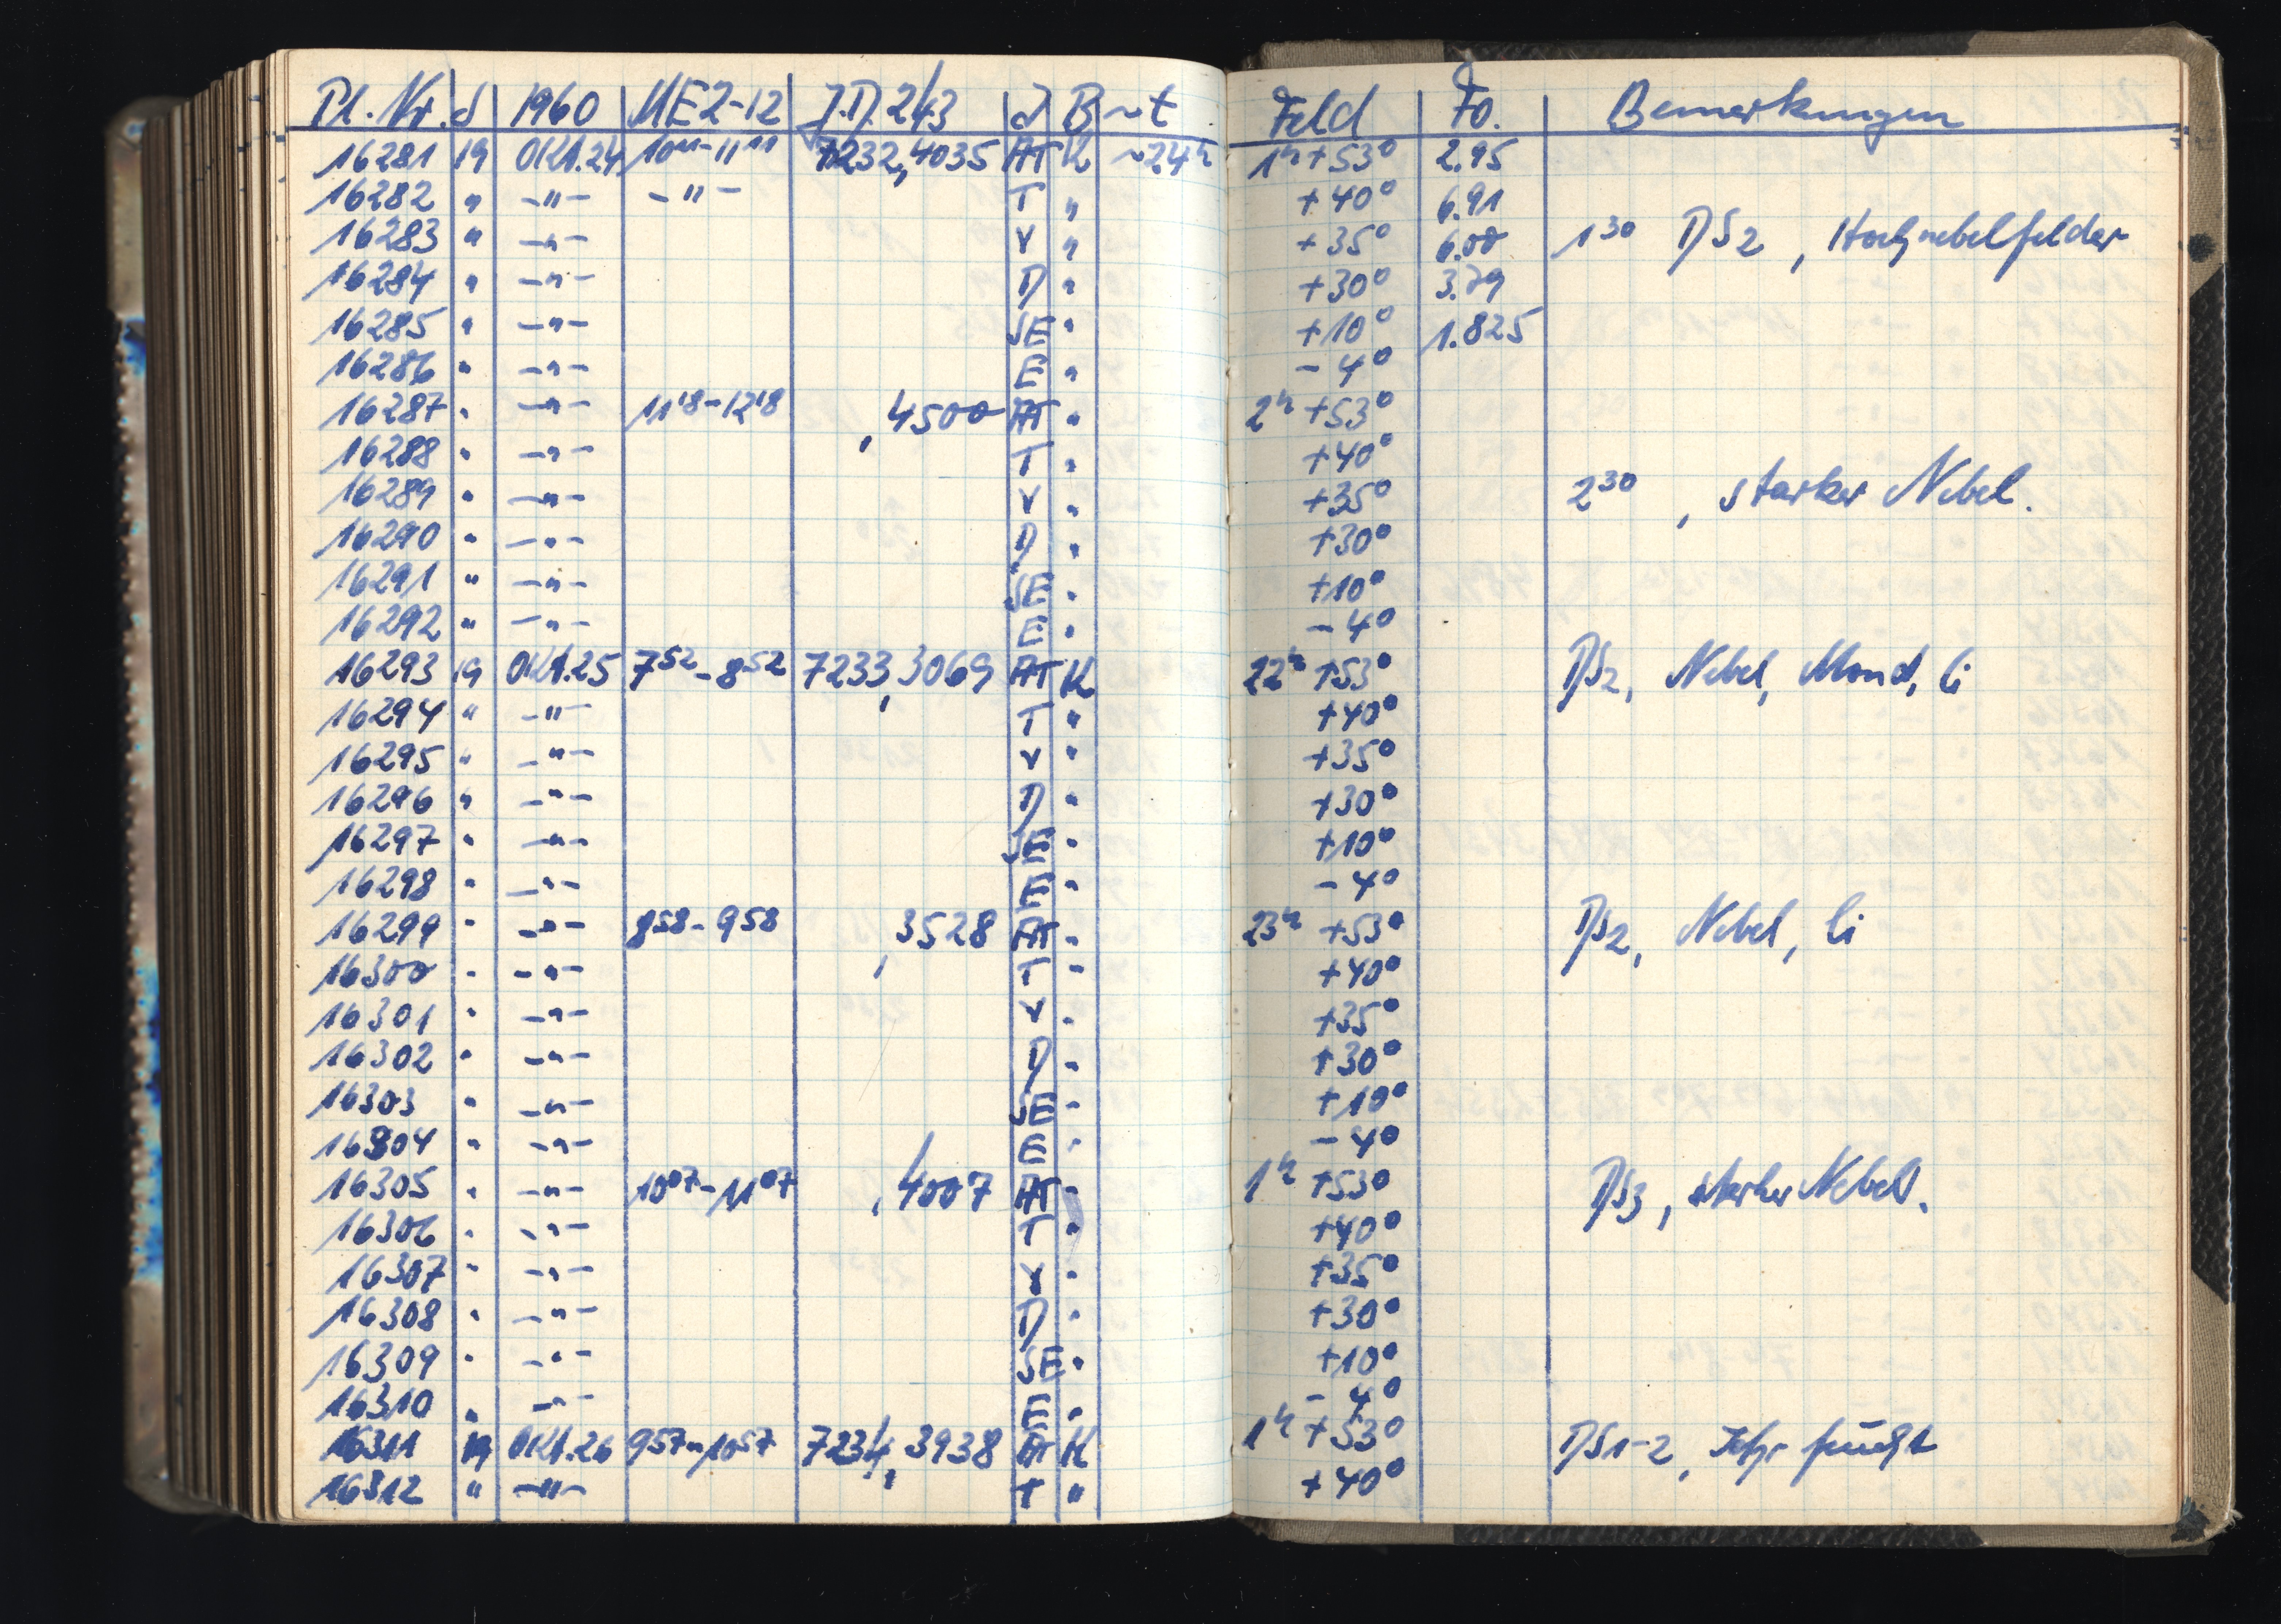 Pl. Nr. d 1960 ME2-12 J.D.243 J B ~t Feld Fo. Bemerkungen
16281 19 Okt.24 10¹¹-11¹¹ 7232,4035 AT K ~24ʰ 1ʰ+53° 2.95
16282 " -"- -"- T " +40° 6.91
16283 " -"- V " +35° 6.00 1³⁰ DS2, Hochnebelfelder
16284 " -"- D " +30° 3.79
16285 " -"- SE " +10° 1.825
16286 " -"- E " -4°
16287 " -"- 11¹⁸-12¹⁸ ,4500 AT " 2ʰ +53°
16288 " -"- T " +40°
16289 " -"- V " +35° 2³⁰ , starker Nebel.
16290 " -"- D " +30°
16291 " -"- SE " +10°
16292 " -"- E " -4°
16293 19 Okt.25 7⁵²-8⁵² 7233,3069 AT K 22ʰ +53° DS2, Nebel, Mond, Ci
16294 " -"- T " +40°
16295 " -"- V " +35°
16296 " -"- D " +30°
16297 " -"- SE " +10°
16298 " -"- E " -4°
16299 " -"- 8⁵⁸-9⁵⁸ ,3528 AT " 23ʰ +53° DS2, Nebel, Ci
16300 " -"- T " +40°
16301 " -"- V " +35°
16302 " -"- D " +30°
16303 " -"- SE " +10°
16304 " -"- E " -4°
16305 " -"- 10⁰⁷-11⁰⁷ ,4007 AT " 1ʰ +53° DS3, starker Nebel.
16306 " -"- T " +40°
16307 " -"- V " +35°
16308 " -"- D " +30°
16309 " -"- SE " +10°
16310 " -"- E " -4°
16311 19 Okt.26 9⁵⁷-10⁵⁷ 7234,3938 AT K 1ʰ +53° DS1-2, sehr feucht
16312 " -"- T " +40°